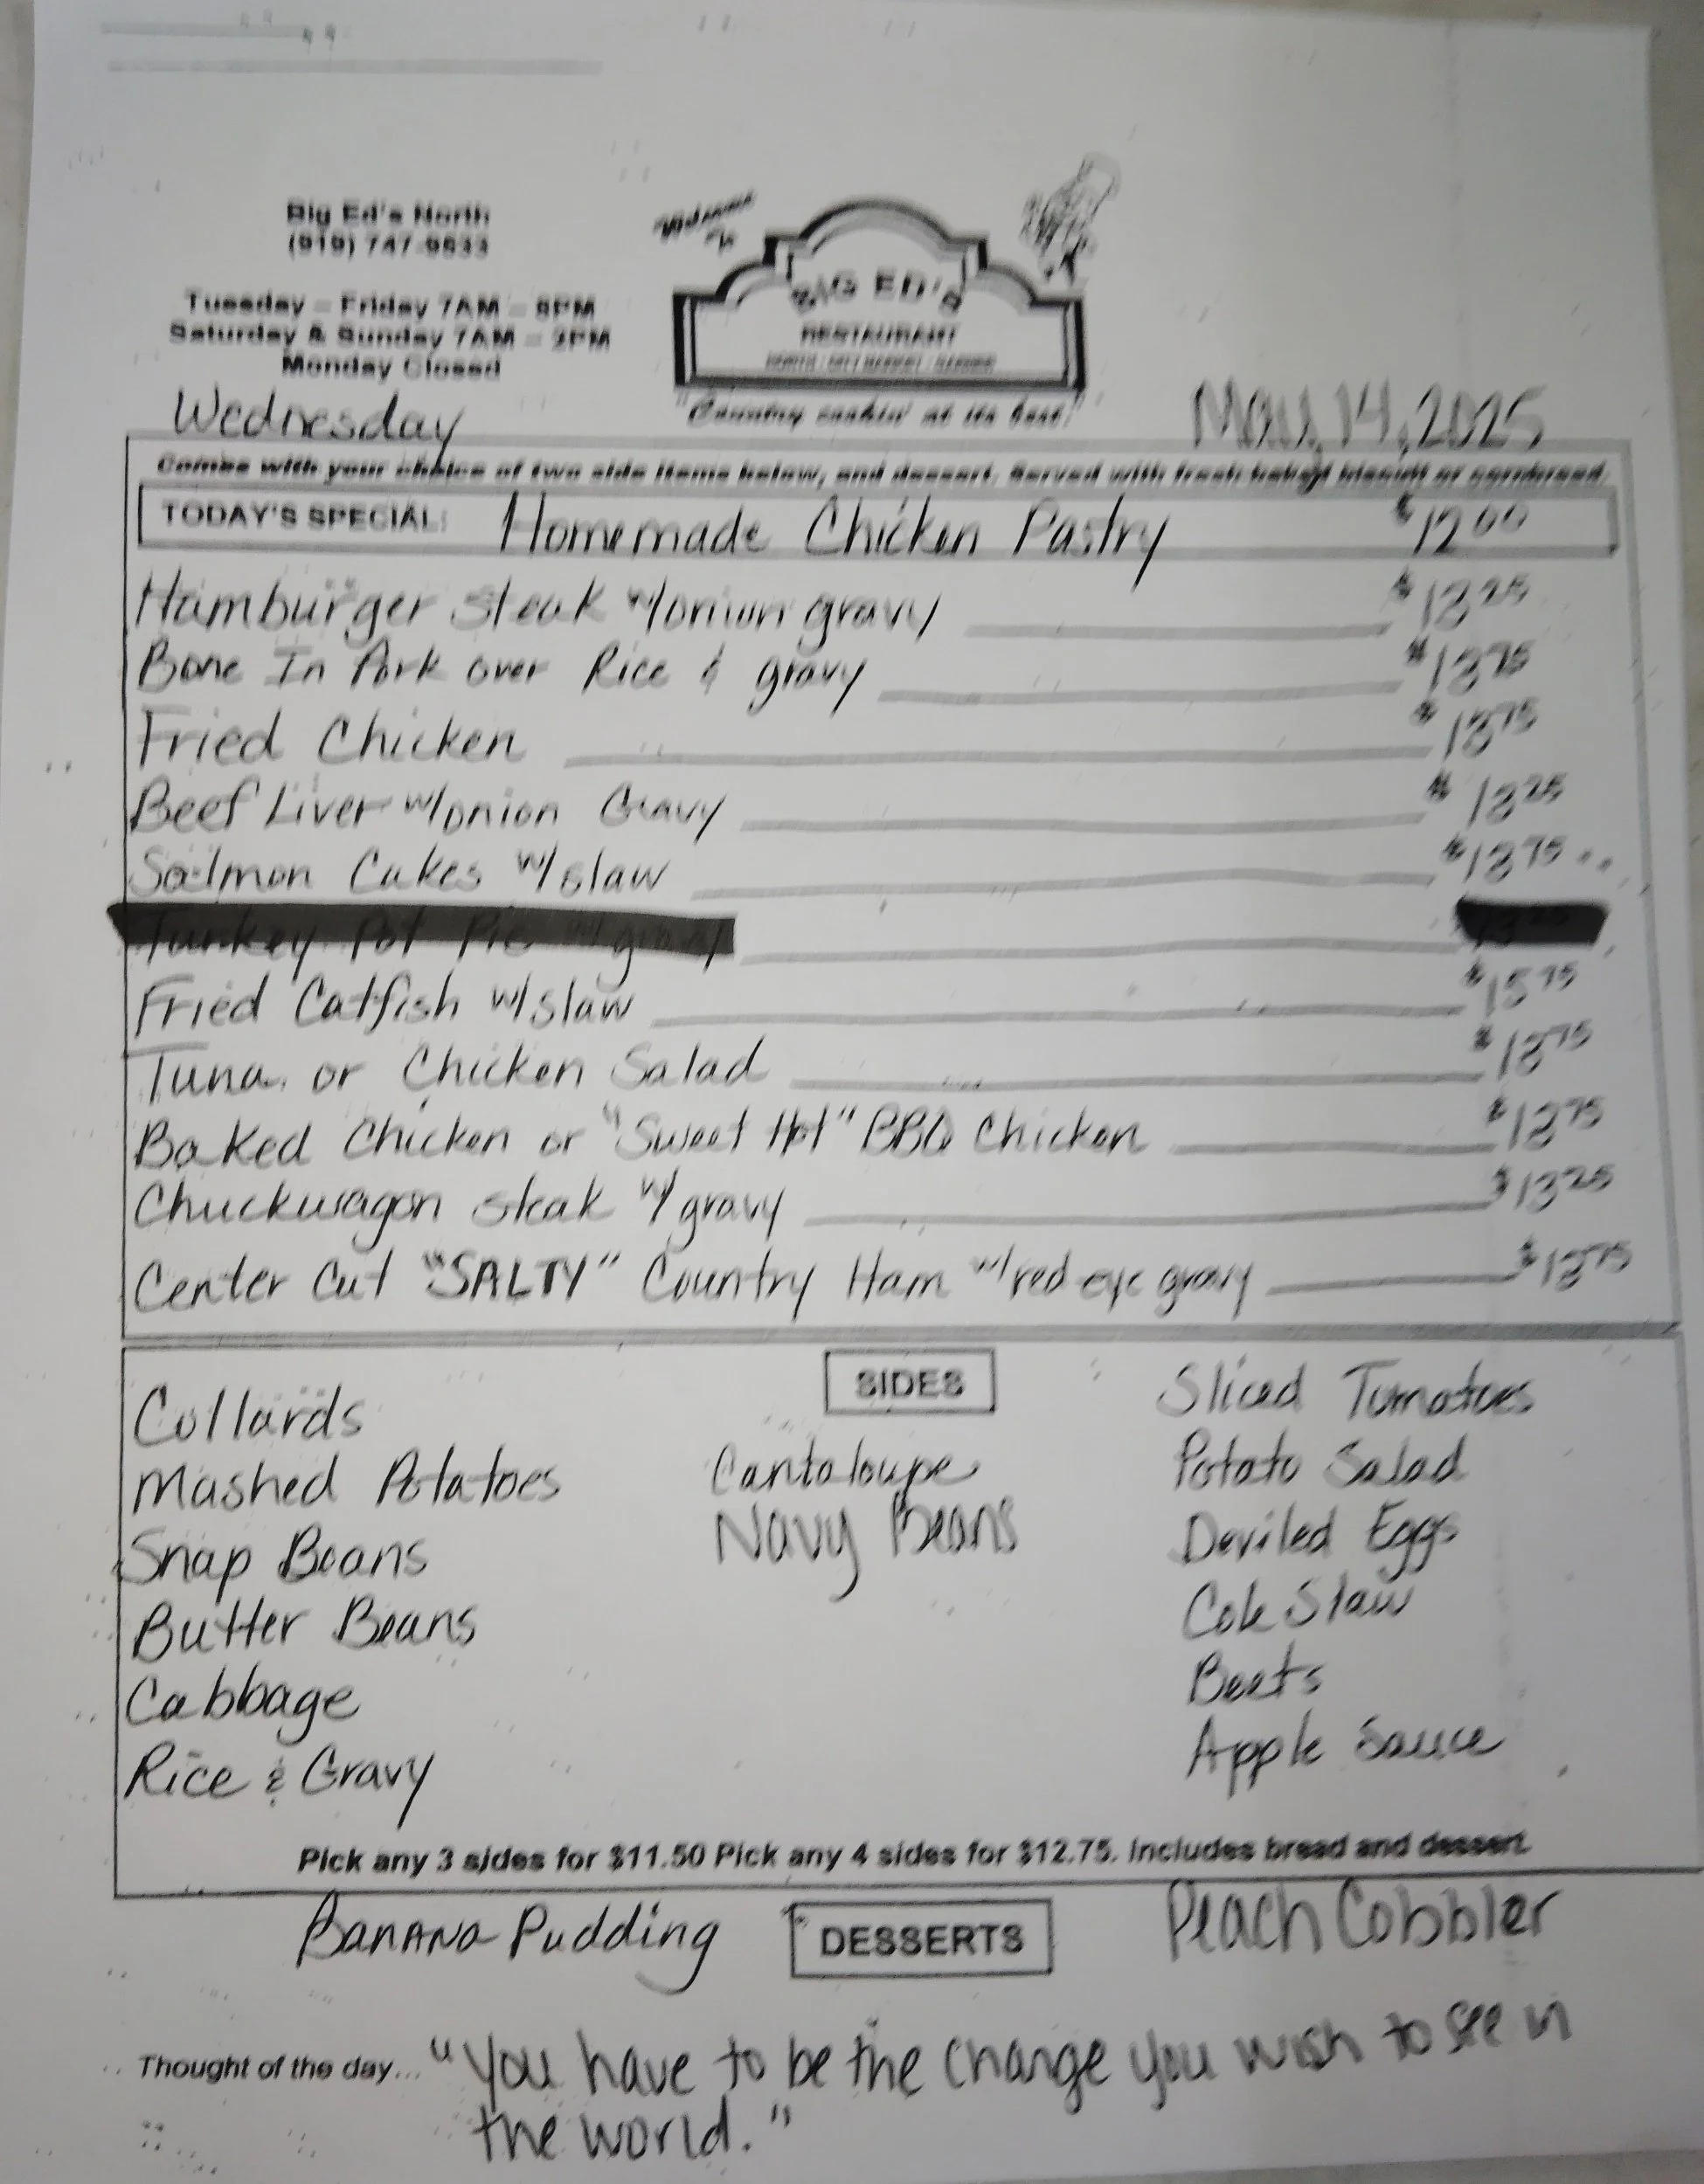 Big Ed's North
(919) 747-9533
Tuesday – Friday 7AM – 8PM
Saturday & Sunday 7AM – 2PM
Monday Closed
Welcome to
BIG ED'S
RESTAURANT
"Country cookin' at its best!"
Wednesday
May, 14, 2025
Comes with your choice of two side items below, and dessert. Served with fresh baked biscuit or cornbread.
TODAY'S SPECIAL: Homemade Chicken Pastry $12.00
Hamburger Steak w/onion gravy $13.25
Bone In Pork over Rice & gravy $13.75
Fried Chicken $13.75
Beef Liver w/onion Gravy $13.25
Salmon Cakes w/slaw $13.75
Turkey Pot Pie w/ gravy
Fried Catfish w/slaw $15.75
Tuna or Chicken Salad $13.75
Baked Chicken or "Sweet Hot" BBQ Chicken $13.75
Chuckwagon steak w/gravy $13.25
Center Cut "SALTY" Country Ham w/red eye gravy $13.75
SIDES
Collards
Mashed Potatoes
Snap Beans
Butter Beans
Cabbage
Rice & Gravy
Cantaloupe
Navy Beans
Sliced Tomatoes
Potato Salad
Deviled Eggs
Cole Slaw
Beets
Apple Sauce
Pick any 3 sides for $11.50 Pick any 4 sides for $12.75. Includes bread and dessert.
DESSERTS
Banana Pudding
Peach Cobbler
Thought of the day... "You have to be the change you wish to see in
the world."